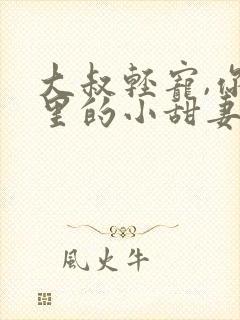 大叔輕寵,你
里的小甜妻
風火牛